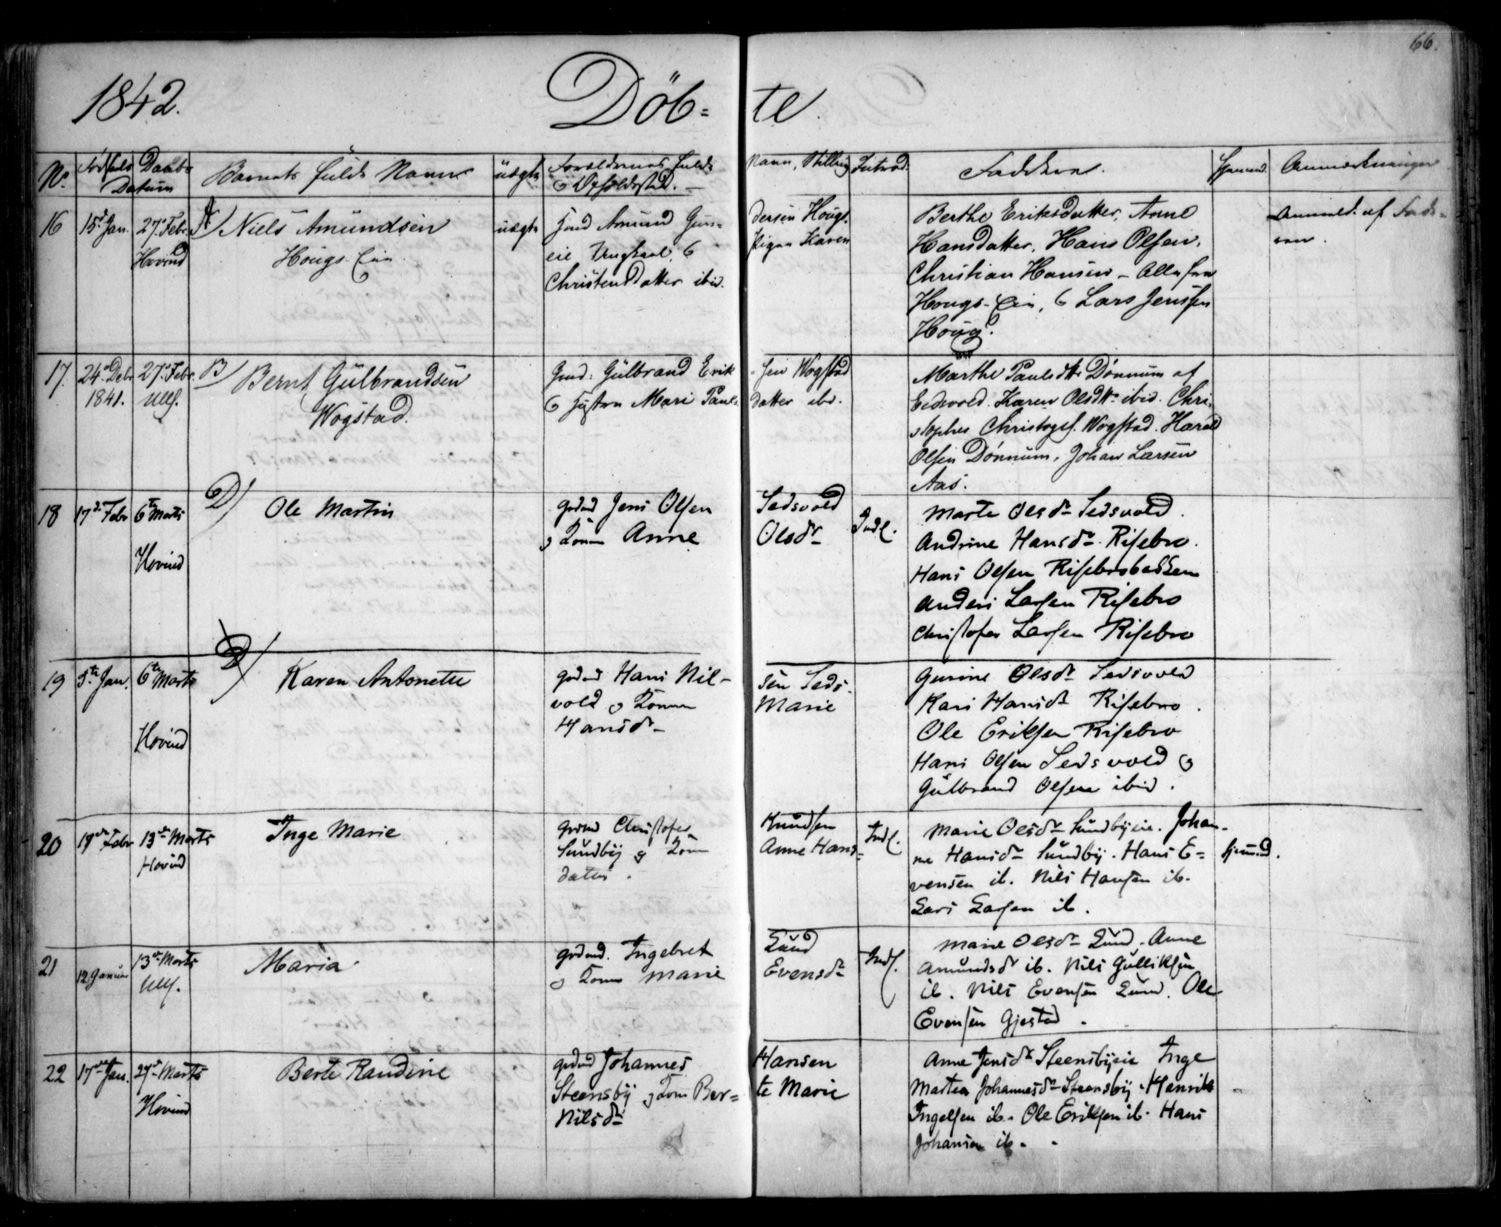 66.
1842. Döb= te.
No. Fødsels Daabs Datum Barnets fulde Navn uægte Forældrenes fulde Navn, Stilling & Opholdsted. Introd. Faddere. Anmerkninger
16 15d Jan. 27 Febr. Hovind A) Niels Amündsen
Höugs Eie
uægte
Amund Gun= dersen Höugs
eie Ungkarl, & Pigen Karen
Christensdatter ibid.
Berthe Eriksdatter, Anne
Hansdatter, Hans Olsen,
Christian Hansen – Alle fra
Hougs-Eie, & Lars Jensen
Höug.
Anmeldt af Fade-
ren.
17. 24de Debr 1841. 27 Febr. Ulls. B) Bernt Gülbrandsen
Wogstad.
Gmd: Gülbrand Erik -sen Wogstad
& Hustru Mari Pauls datter ibd.
Marthe Paulsdtr Dønnum af
Eidsvold. Karen Olsdtr ibid. Chri-
stopher Christophs. Wogstad. Harald
Olsen Dønnum, Johan Larsen
Aas.
18 17de Febr 6te Marts Hovind D) Ole Martin
Jens Olsen Sedsvold
& Konne Anne Olsdr
Indl.
Marte Olsdr Sedsvold.
Andrine Hansdr Risebro.
Hans Olsen Risebrobakken
Anders Larsen Risebro
Christofer Larsen Risebro
19 5te Jan. 6te Marts Hovind D) Karen Antonette
Hans Nil- sen Seds-
vold & Konne Marie
Hansdr
Gurine Olsdr Sedsvold
Kari Hansdr Risebro.
Ole Eriksen Risebro
Hans Olsen Sedsvold &
Gülbrand Olsen ibid.
20 19de Febr 13de Marts Hovind Inge Marie
Christofer Knudsen
Sundby & Kone Anne Hans=
datter.
Indl.
Marie Olsdr Sundbyeie. Johan-
ne Hansdr Sundby. Hans E=
vensen ib. Nils Hansen ib.
Lars Larsen ib.
hjemd.
21 12 Januar 13de Marts Ulls. Maria
Ingebret Lund
& Kone Marie Evensdr
Indl.
Marie Olsdr Lund. Anne
Amundsdr ib. Nils Gulliksen
ib. Nils Evensen Lund. Ole
Evensen Gjestad.
22 17de Jan. 27de Marts Hovind Berte Randine
Johannes Hansen
Steensby & Kone Ber= te Marie
Nilsdr
Anne Jensdr Steensbyeie Inge
Martea Johannesdr Steensby. Henrik
Ingelsen ib. Ole Eriksen ib. Hans
Johansen ib.